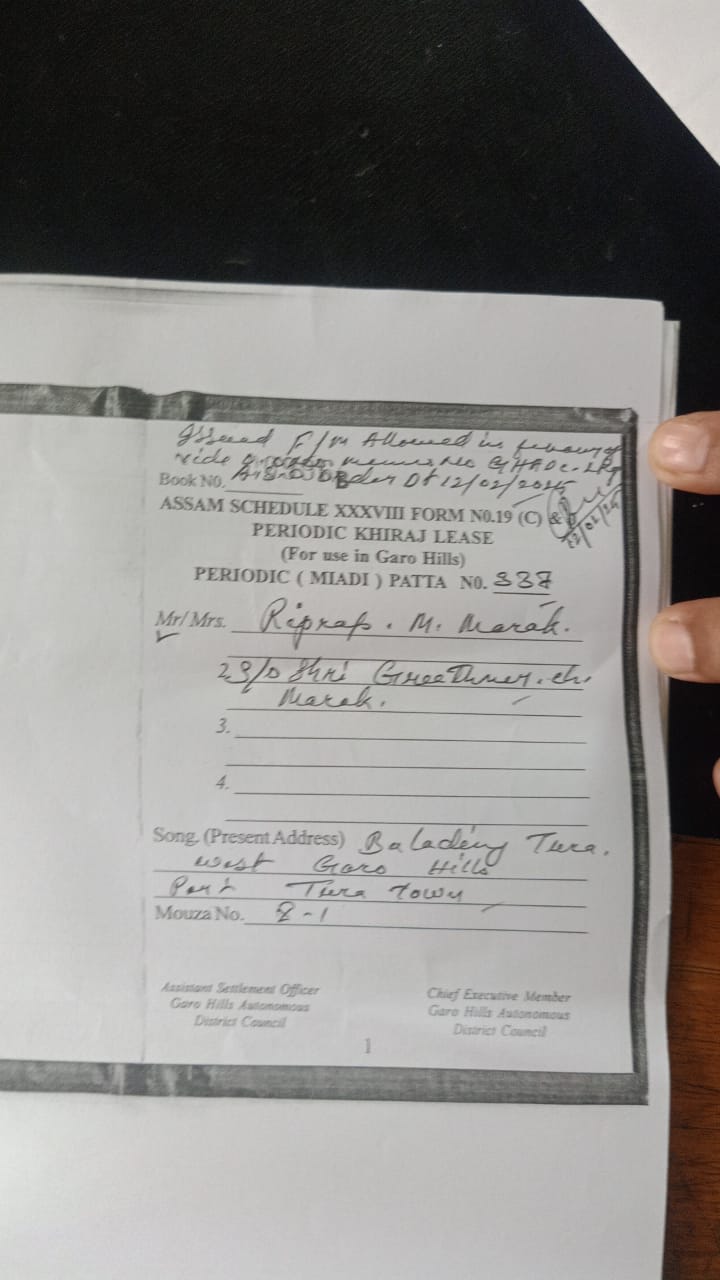 Issued F/M Allowed in favour of
vide memo No GHADC.
Book NO. Order Dt 12/02/2025
ASSAM SCHEDULE XXXVIII FORM N0.19 (C) &
12/02/25
PERIODIC KHIRAJ LEASE
(For use in Garo Hills)
PERIODIC ( MIADI ) PATTA N0. 337
Mr/ Mrs. Riprap. M. Marak.
2 S/o Shri Ch.
Marak.
3.
4.
Song. (Present Address) Baladeng Tura.
West Garo Hills
Part Tura Town
Mouza No. 8-1
Assistant Settlement Officer
Garo Hills Autonomous
District Council
Chief Executive Member
Garo Hills Autonomous
District Council
1